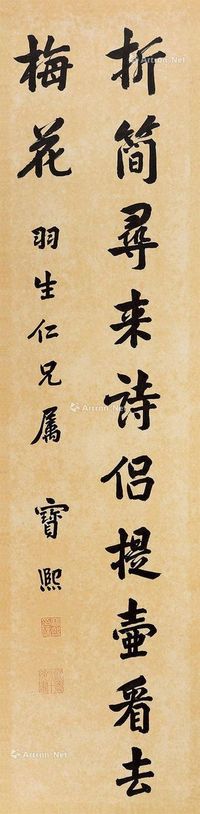 折简尋来詩侣提壷看去
梅花
羽生仁兄属
寶熙
Artron.Net
Artron.Net
Artron.Net
Artron.Net